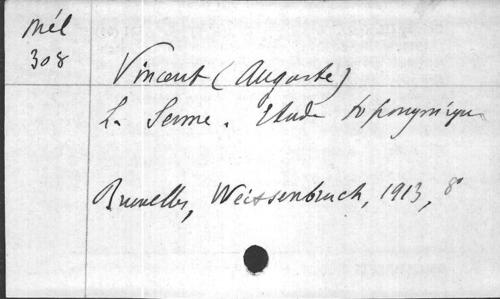 Mél
308
Vincent (Auguste)
La Senne. Etude toponymique
Bruxelles, Weissenbruch, 1913, 8°